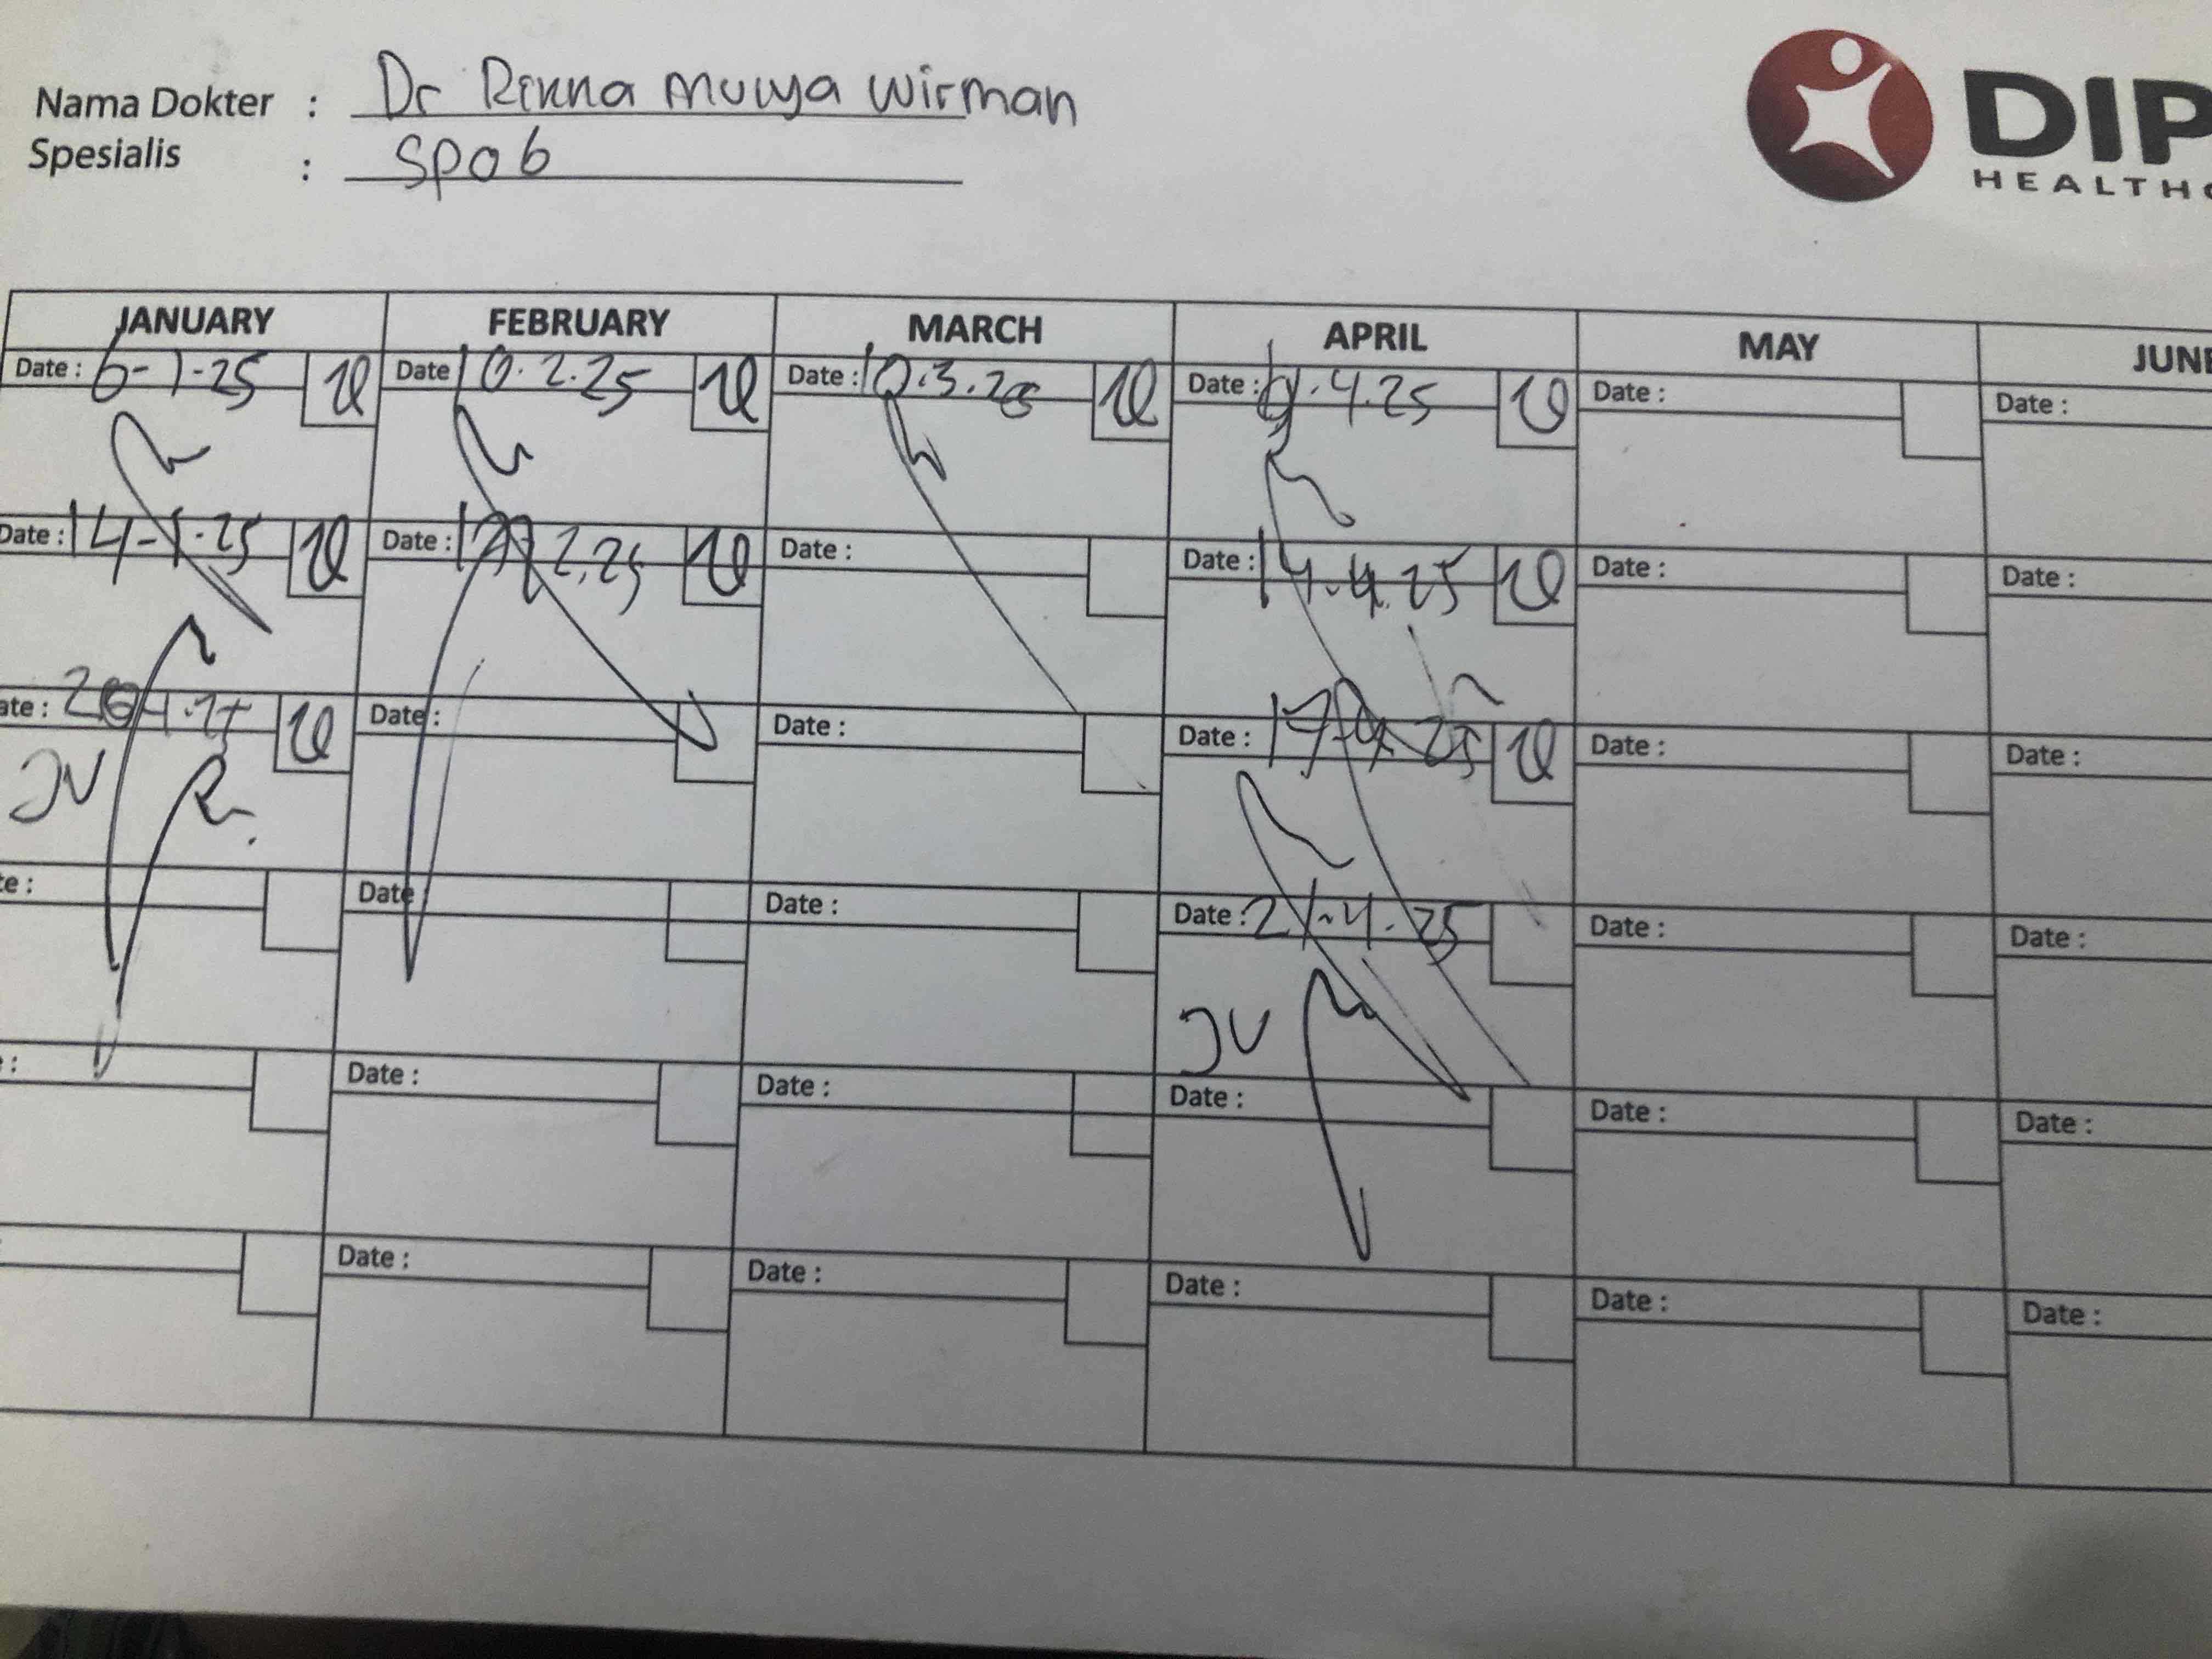 Nama Dokter : Dr Rinna Mulya Wirman
Spesialis : SPOG
DIP
HEALTHC
JANUARY FEBRUARY MARCH APRIL MAY JUNE
Date : 6-1-25 Date 10.2.25 Date : 10.3.25 Date : 9.4.25 Date : Date :
Date : 14-1-25 Date : 17-2.25 Date : Date : 14.4.25 Date : Date :
ate : Date : Date : Date : 17-4-25 Date : Date :
JV
te : Date : Date : Date : 21-4-25 Date : Date :
JV
: Date : Date : Date : Date : Date :
: Date : Date : Date : Date : Date :